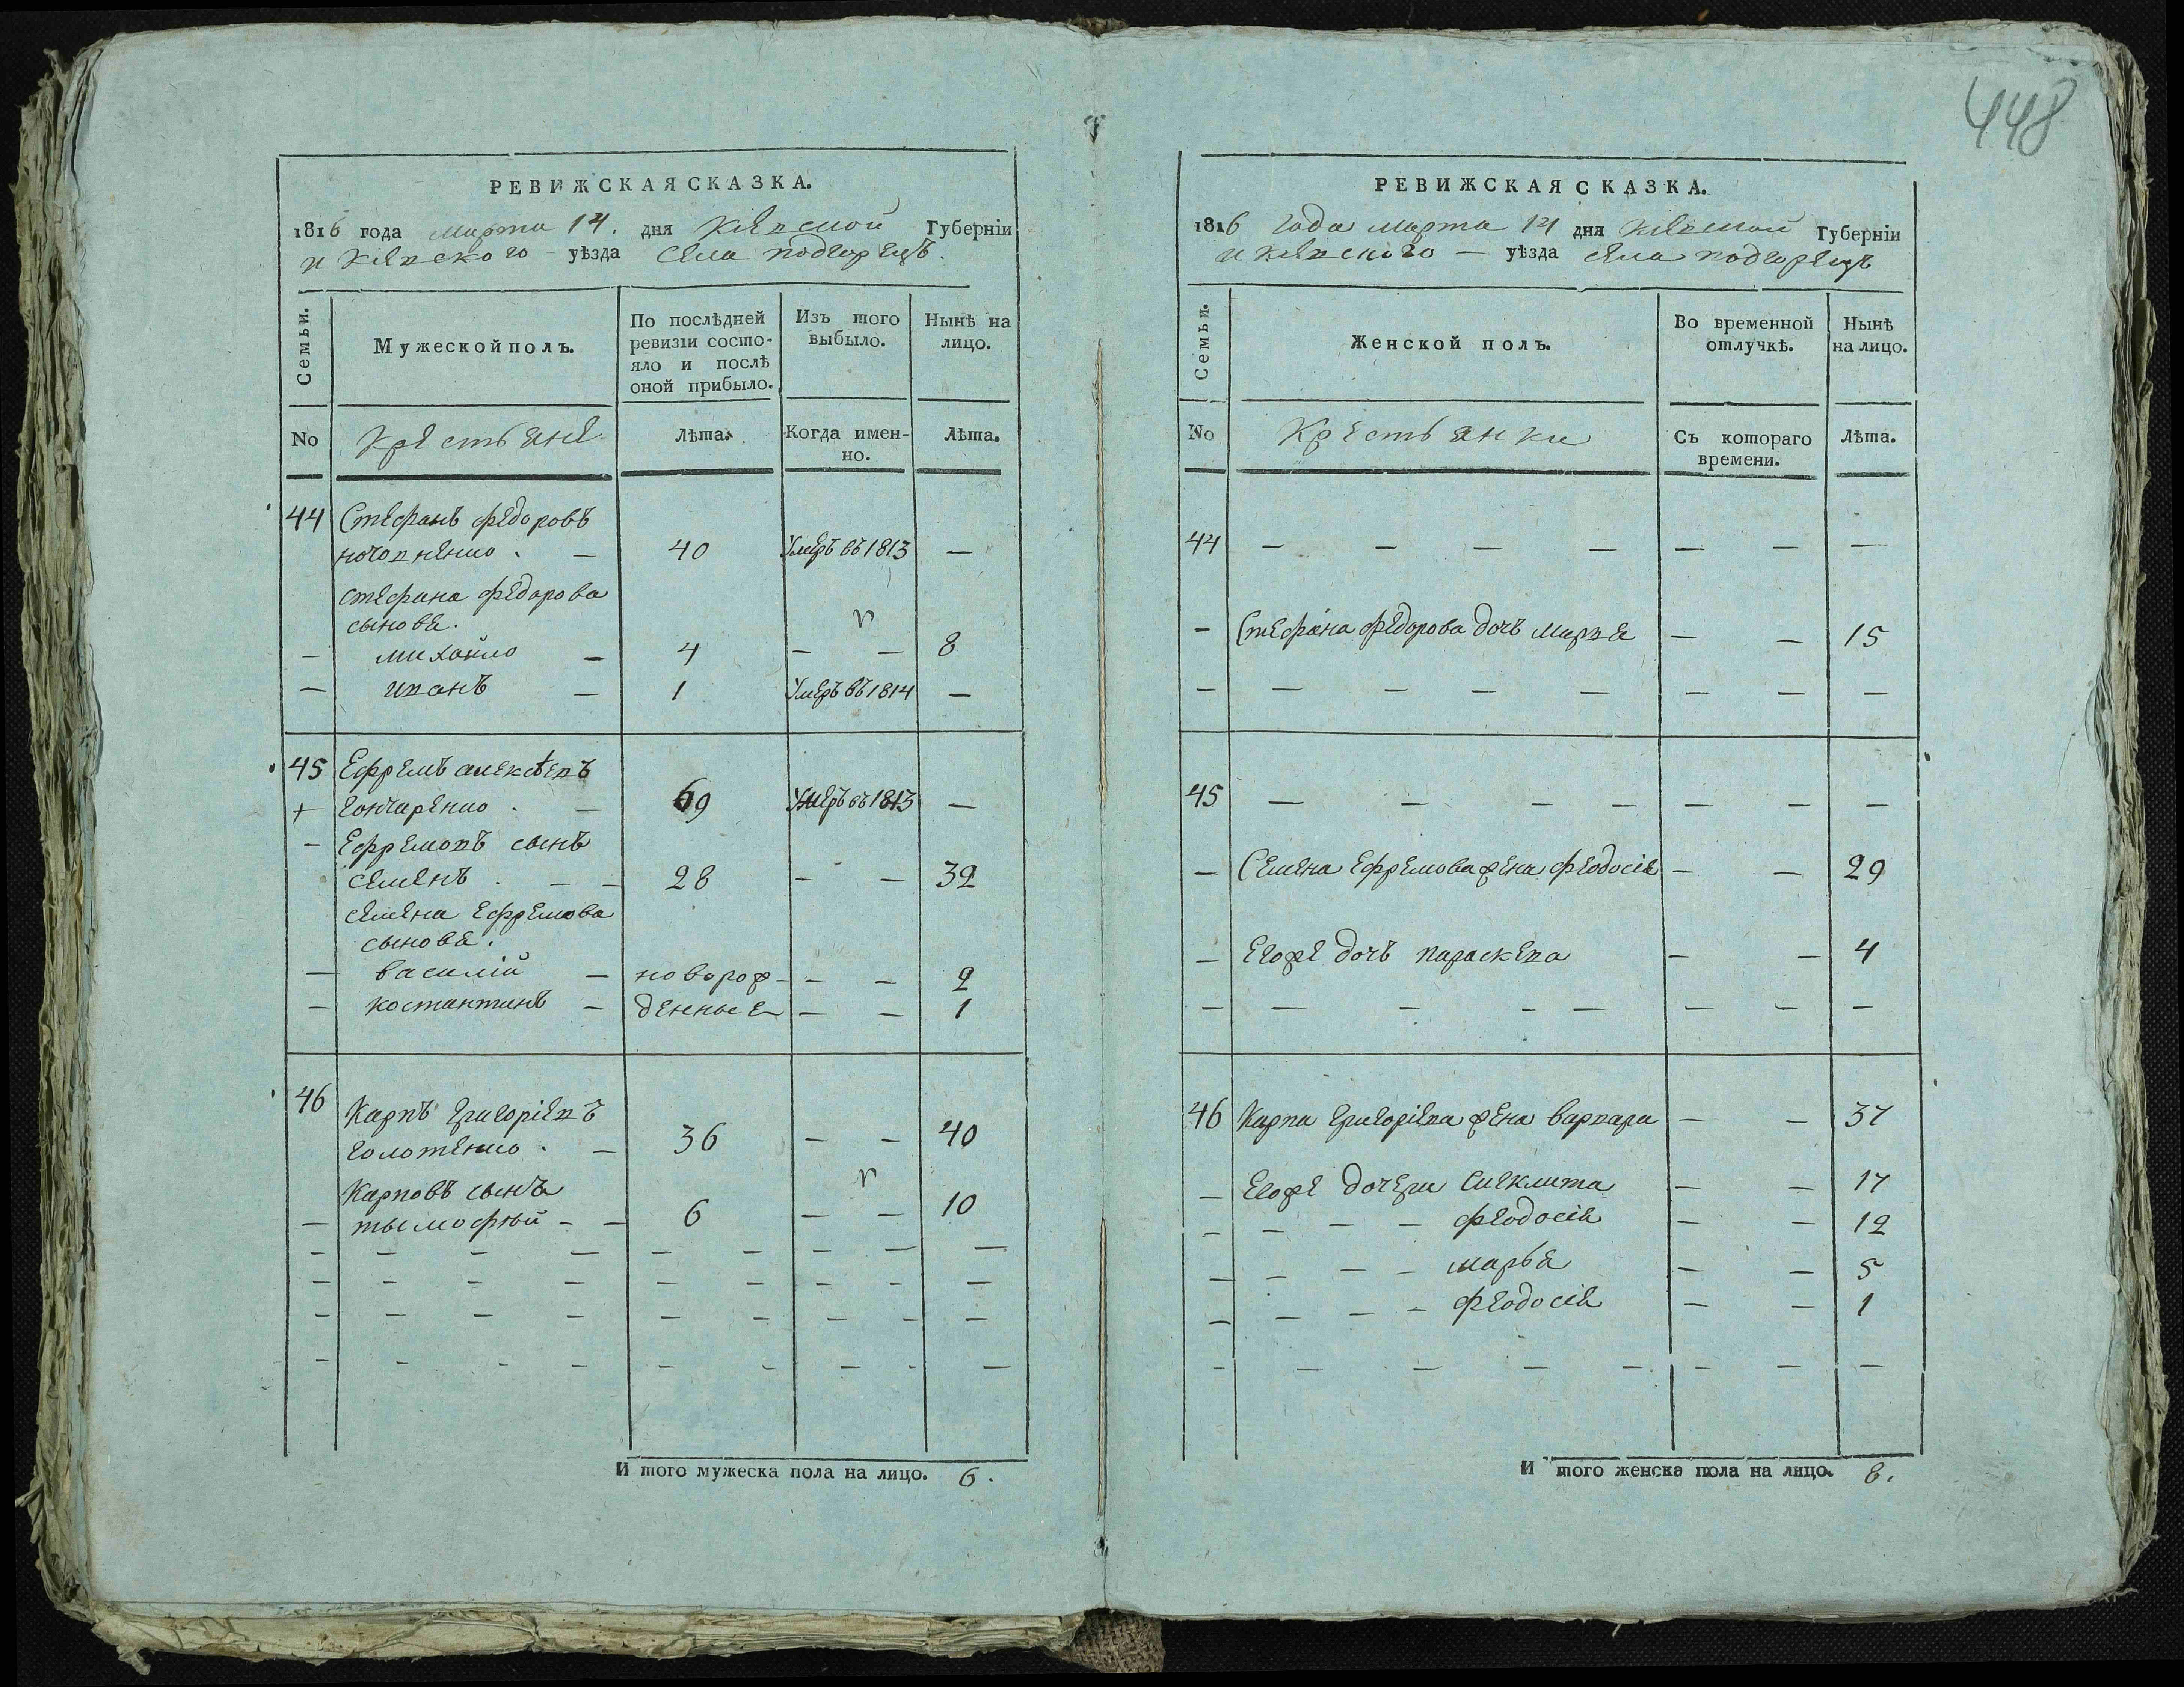 448
РЕВИЖСКАЯ СКАЗКА.
1816 года марта 14. дня Кіевской Губерніи
и Кіевского уѣзда села подгорецъ.
Семьи.
Мужеской полъ.
По послѣдней ревизіи состо-
яло и послѣ
оной прибыло.
Изъ того
выбыло.
Нынѣ на
лицо.
No
Крестьяне
Лѣта.
Когда имен-
но.
Лѣта.
44 Стефанъ федоровъ
— 40 Умеръ въ 1813 —
стефана федорова
сынове.
— михайло — 4 — — 8
— иванъ — 1 Умеръ въ 1814 —
45 Ефремъ алексѣевъ
+ гончаренко . — 69 Умеръ въ 1813 —
— Ефремовъ сынъ
семенъ . — — 28 — — 32
семена Ефремова
сынове.
— василій — новорож- — — 2
— костантинъ — денные — — — 1
46 Карпъ григоріевъ
голотенко . — 36 — — 40
Карповъ сынъ
— тымофѣй — — 6 — — 10
И того мужеска пола на лицо. 6.
РЕВИЖСКАЯ СКАЗКА.
1816 года марта 14 дня Кіевской Губерніи
и Кіевского — уѣзда села подгорецъ
Семьи.
Женской полъ.
Во временной
отлучкѣ.
Нынѣ
на лицо.
No
Крестьянки
Съ котораго
времени.
Лѣта.
44 — — — — — — —
— Стефана федорова дочъ марья — — 15
45 — — — — — — —
— Семена Ефремова жена феодосія — — 29
— Егоже дочъ параскева — — 4
46 Карпа григоріева жена варвара — — 37
— Егоже дочери сиклита — — 17
— — — — феодосія — — 12
— — — — марья — — 5
— — — — феодосія — — 1
И того женска пола на лицо. 8.